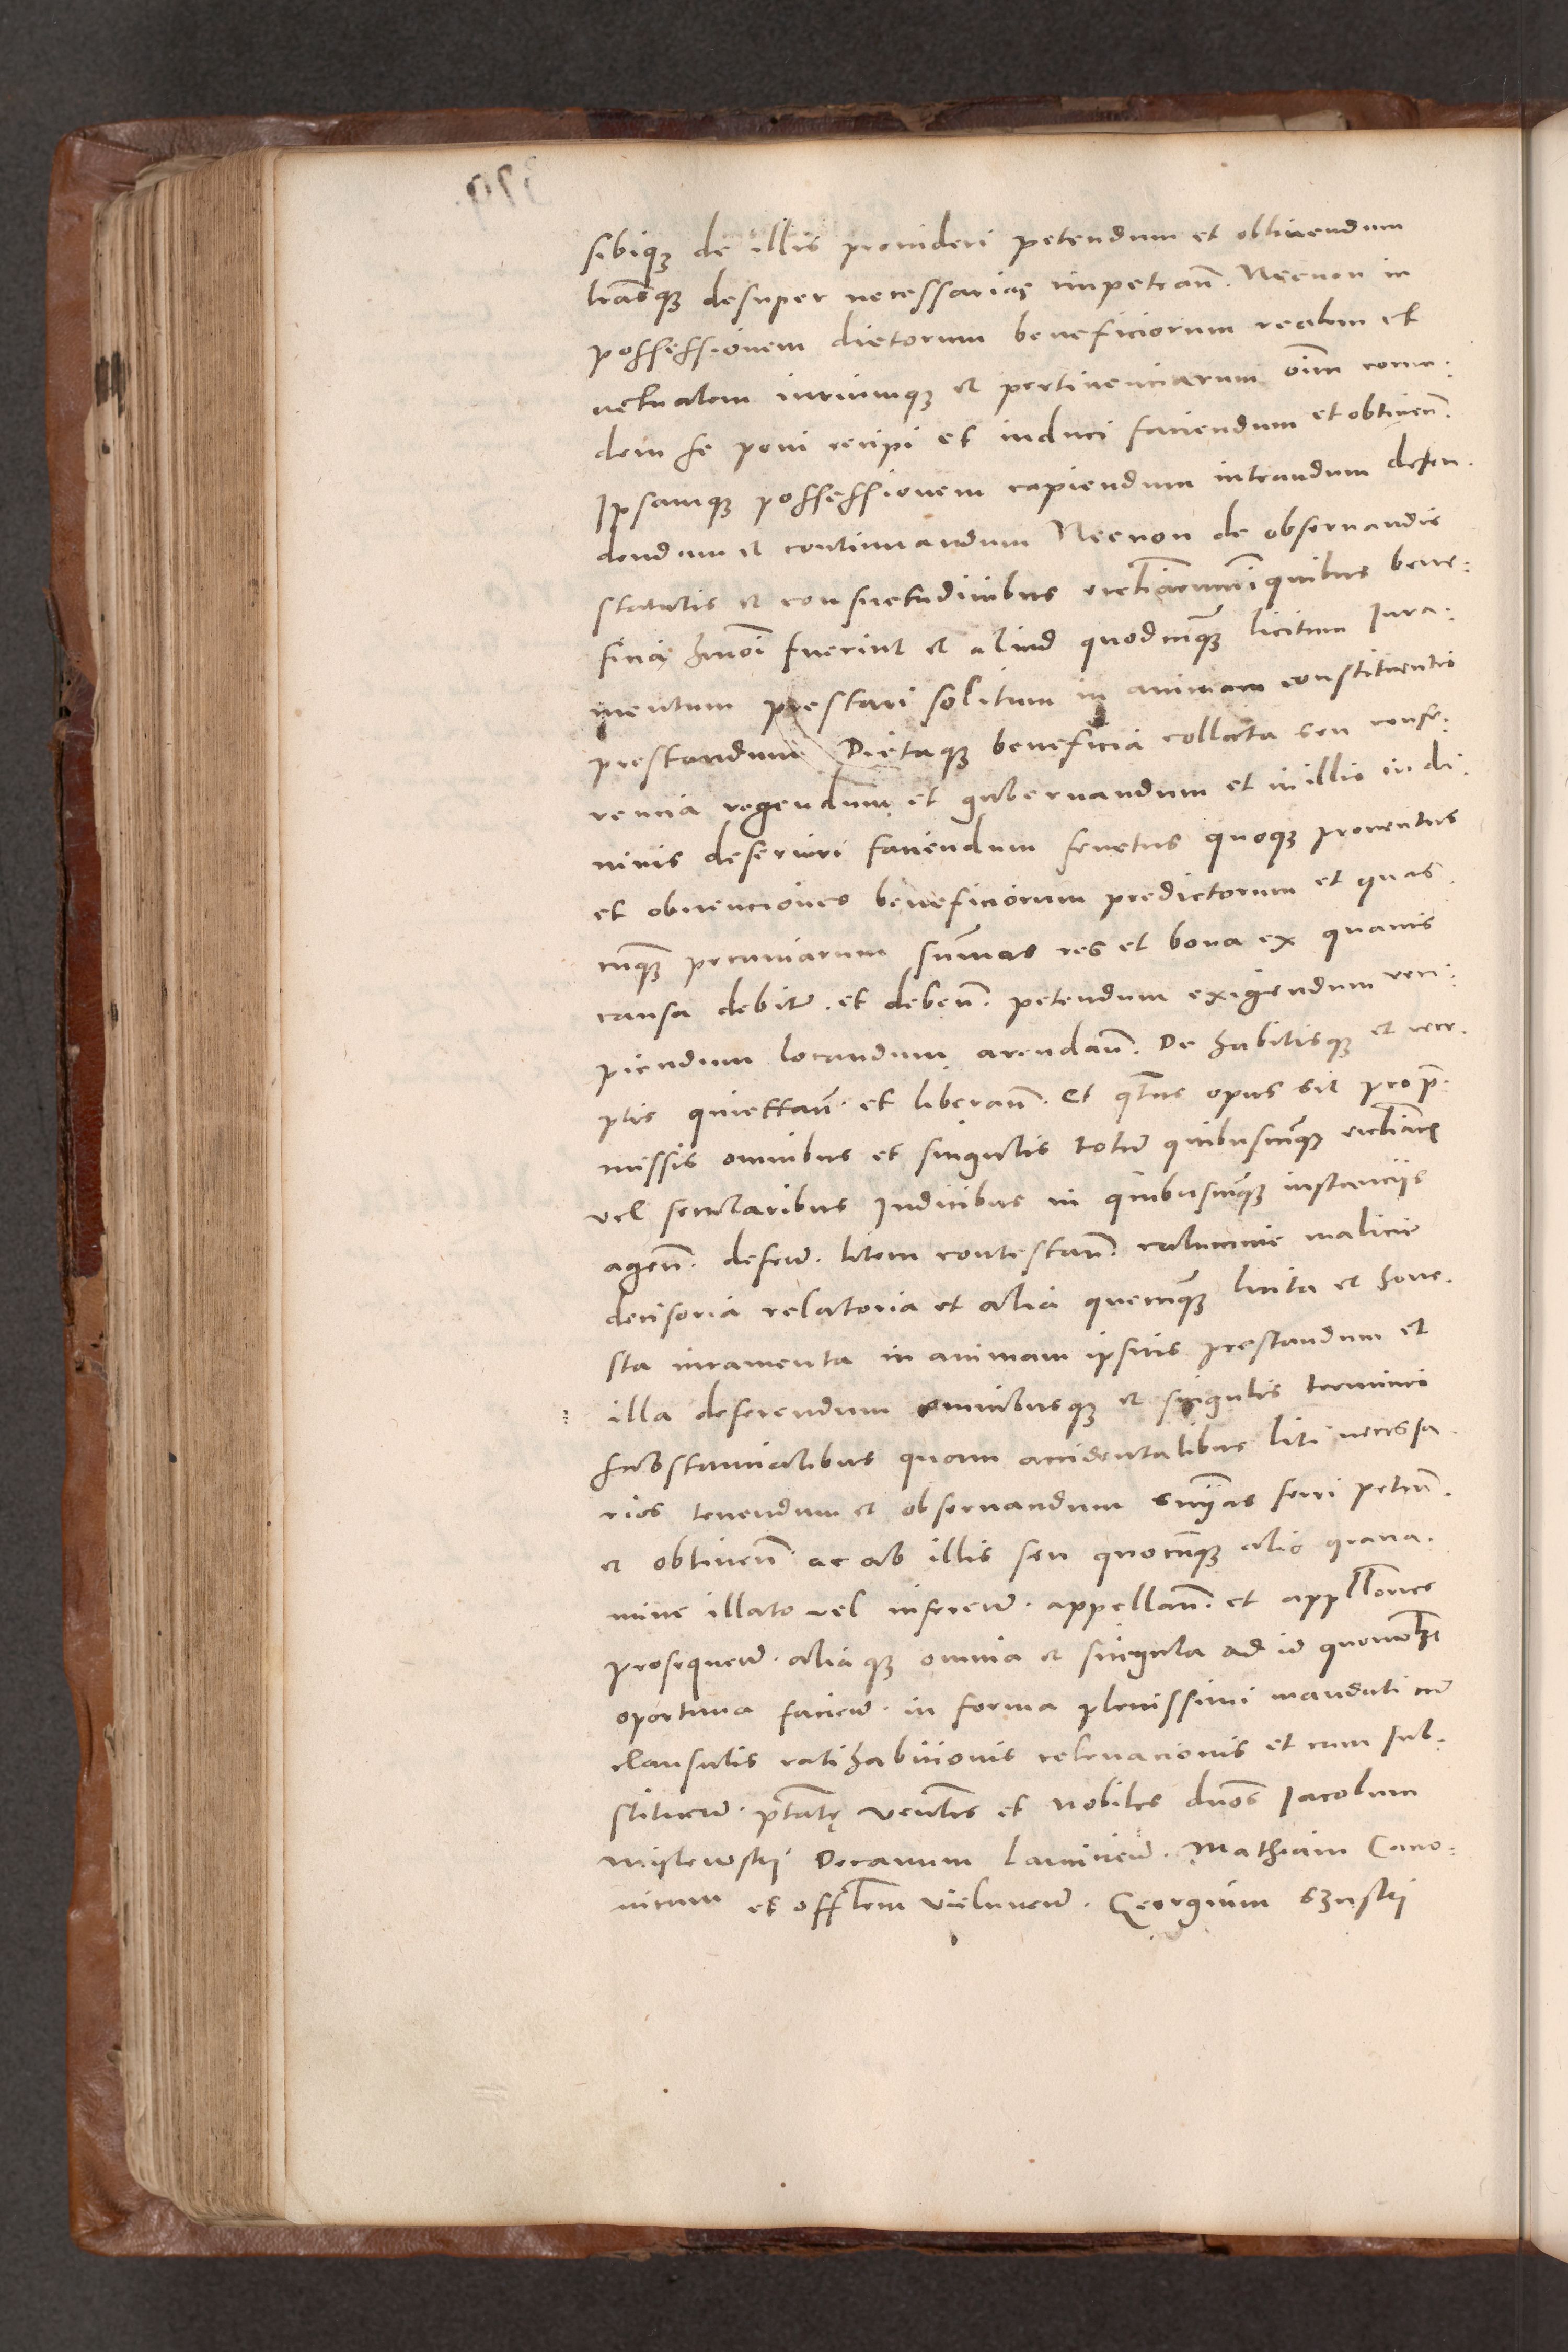 sibiqꝫ de illis provideri petendum et obtinendum
lrasqꝫ desuper necessarias impetran̄. Necnon in
possessionem dictorum beneficiorum realem et
actualem iuriumqꝫ et pertinenciarum oīm eorun:
dem se poni recipi et induci faciendum et obtinen̄.
Ipsamqꝫ possessionem capiendum intrandum defen:
dendum et continuandum Necnon de observandis
statutis et consuetudinibus eccliarum in quibus bene:
ficia hmōi fuerint et aliud quodcūqꝫ licitum Iura:
mentum prestari solitum in animam constituentis
prestandum Dictaqꝫ beneficia collata seu confe:
rencia regendum et gubernandum et in illis in di
vinis deserviri faciendum fructus quoqꝫ proventus
et obvenciones beneficiorum predictorum et quas
cūqꝫ pecuniarum summas res et bona ex quavis
causa debit̄. et deben̄. petendum exigendum reci:
piendum locandum arendan̄. De habitisqꝫ et rece:
ptis quiettan̄. et liberan̄. Et q̄tus opus sit pro p̄:
missis omnibus et singulis coram quibuscūqꝫ eccliacis
vel secularibus Iudicibus in quibuscūqꝫ instanciis
agen̄. defen̄. litem contestan̄. calumnie malicie
decisoria relatoria et alia quecūqꝫ licita et hone:
sta iuramenta in animam ipsius prestandum et
illa deferendum omnibusqꝫ et singulis terminis
substancialibus quam accidentalibus liti necessa
rios tenendum et observandum sn̄ias ferri peten̄.
et obtinen̄. ac ab illis seu quocūqꝫ alio grava:
mine illato vel inferen̄. appellan̄. et appellōnes
prosequen̄. aliaqꝫ omnia et singula ad id quomolt
oportuna facien̄. in forma plenissimi mandati cū
clausulis ratihabicionis relevacionis et cum sub:
stituen̄. ptate venles et nobiles dnōs Iacobum
Myslewskij Decanum Lancicien̄. Mathiam Cano:
nicum et offlem Vielunen̄. Georgium Szuskij